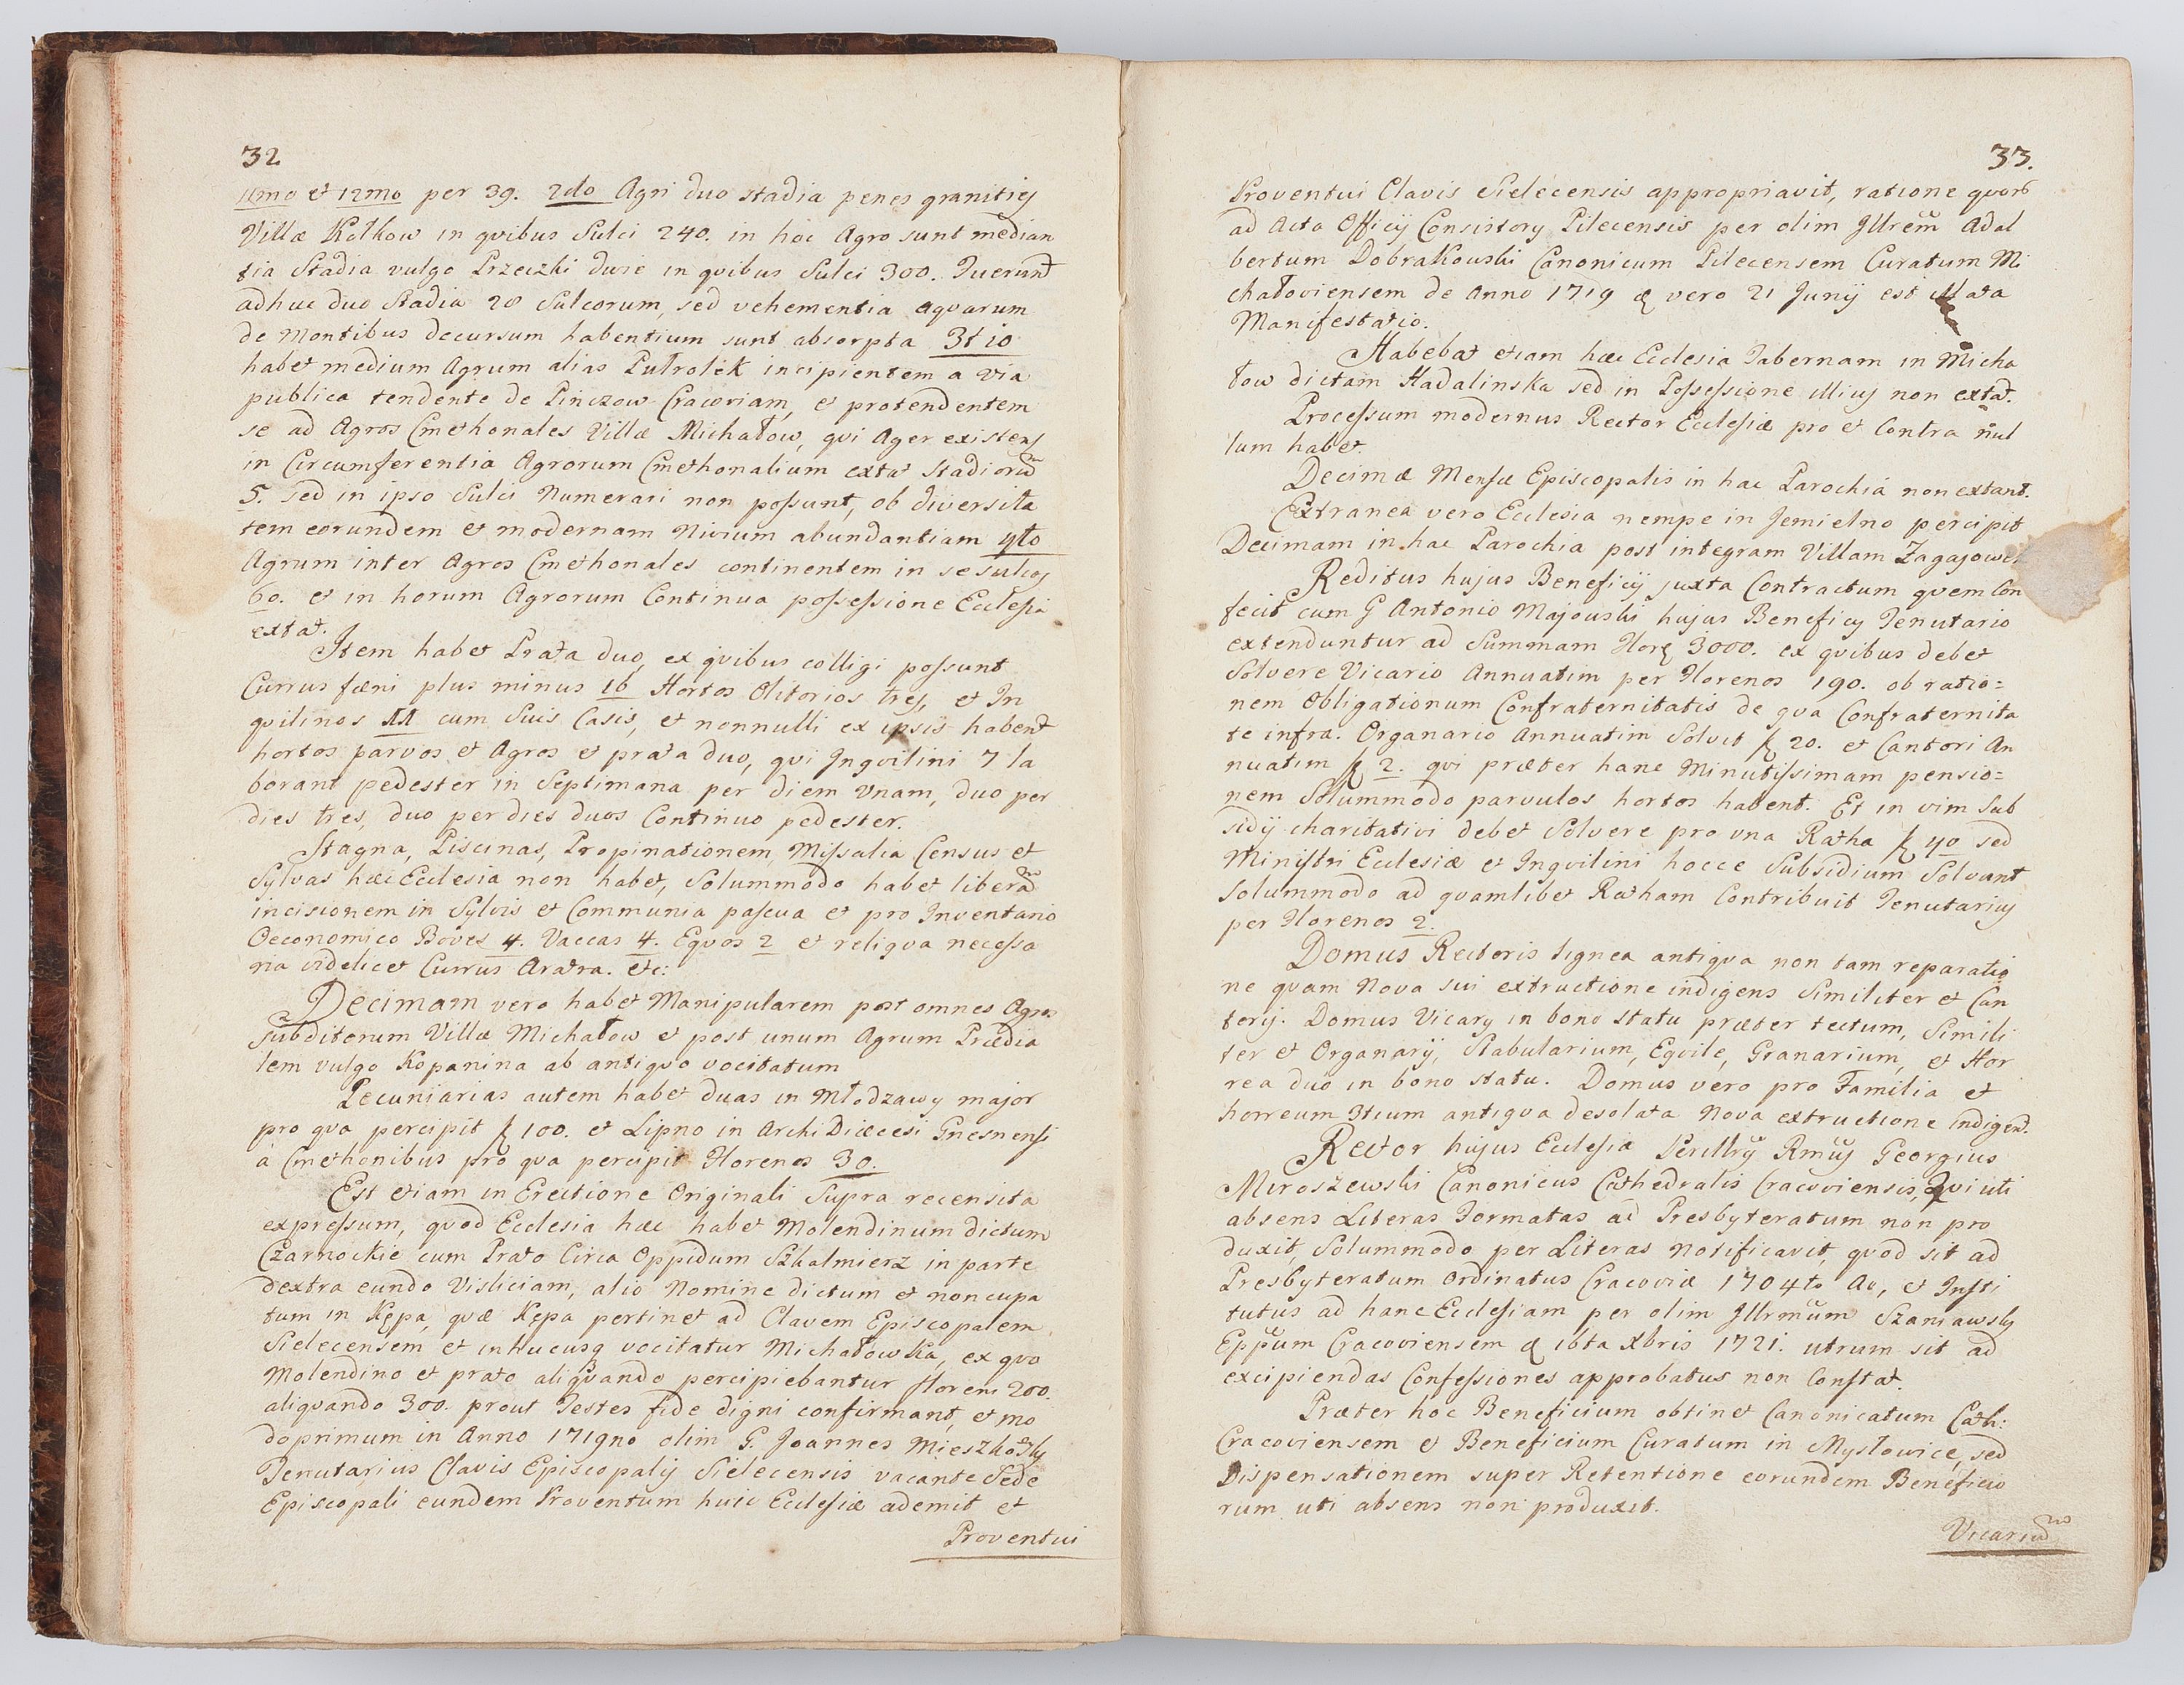 32
11mo et 12mo per 39. 2do Agri duo stadia penes granities
Villæ Kołkow in qvibus Sulci 240. in hoc Agro sunt median
tia Stadia vulgo Przeczki dwie in qvibus Sulci 300. Fuerunt
adhuc duo Stadia 20 Sulcorum, sed vehementia aqvarum
de Montibus decursum habentium sunt absorpta 3tio
habet medium Agrum alias Pułrolek incipientem a via
publica tendente de Pinczow Cracoviam, et protendentem
se ad Agros Cmethonales Villæ Michałow, qvi Ager existens
in Circumferentia Agrorum Cmethonalium extat Stadiorum
5. sed in ipso Sulci Numerari non possunt, ob diversita
tem eorundem et modernam Nivium abundantiam 4to
Agrum inter Agros Cmethonales continentem in se sulcos
60. et in horum Agrorum Continua possessione Ecclesia
extat.
Item habet Prata duo, ex qvibus colligi possunt
Currus fæni plus minus 16 Hortos Olitorios tres, et In
qvilinos 11 cum Suis Casis, et nonnulli ex ipsis habent
hortos parvos et Agros et prata duo, qvi Inqvilini 7 la
borant pedester in Septimana per diem Unam, duo per
dies tres, duo per dies duos Continuo pedester.
Stagna, Piscinas, Propinationem, Missalia Census et
Sylvas hæc Ecclesia non habet, Solummodo habet liberam
incisionem in Sylvis et Communia pascua et pro Inventario
Oeconomico Boves 4. Vaccas 4. Eqvos 2 et reliqva necessa
ria videlicet Currus Aratra. etc:
Decimam vero habet Manipularem post omnes Agros
subditorum Villæ Michałow et post unum Agrum Prædia
lem vulgo Kopanina ab antiqvo vocitatum
Pecuniarias autem habet duas in Młodzawy major
pro qva percipit f 100. et Lipno in ArchiDiæcesi Gnesnensi
à Cmethonibus pro qva percipit Florenos 30.
Est etiam in Erectione Originali Supra recensita
expressum, qvod Ecclesia hæc habet Molendinum dictum
Czarnockie cum Prato Circa Oppidum Szkalmierz in parte
dextra eundo Visliciam, alio Nomine dictum et noncupa
tum in Kępa, qvæ Kępa pertinet ad Clavem Episcopalem
Sielecensem et inhucusq vocitatur Michałowka, ex qvo
Molendino et prato aliqvando percipiebantur floreni 200.
aliqvando 300. prout Testes fide digni confirmant, et mo
doprimum in Anno 1719no olim G. Joannes Mieszkowsky
Tenutarius Clavis Episcopalis Sielecensis vacante Sede
Episcopali eundem Proventum huic Ecclesiæ ademit et
Proventui
33.
Proventui Clavis Sielecensis appropriavit, ratione qvorum
ad Acta Officij Consistory Pilecensis per olim Illrem Adal
bertum Dobrakowski Canonicum Pilecensem Curatum Mi
chałoviensem de Anno 1719 d vero 21 Junij est illata
Manifestatio.
Habebat etiam hæc Ecclesia Tabernam in Micha
łow dictam Hadalinska sed in Possessione illius non extat.
Processum modernus Rector Ecclesiæ pro et Contra nul
lum habet.
Decimæ Mensæ Episcopalis in hac Parochiá non extant.
Extranea vero Ecclesia nempe in Jemielno percipit
Decimam in hac Parochia post integram Villam Zagajow
Reditus hujus Beneficij juxta Contractum qvem Con
fecit cum G Antonio Majowski hujus Beneficij Tenutario
extenduntur ad Summam Flor 3000. ex qvibus debet
Solvere Vicario Annuatim per Florenos 190. ob ratio=
nem Obligationum Confraternitatis de qva Confraternita
te infra. Organario Annuatim Solvit f 20. et Cantori An
nuatim f 2. qvi præter hanc Minutissimam pensio=
nem Solummodo parvulos hortos habent. Et in vim Sub
sidij charitativi debet Solvere pro una Ratha f 40 sed
Ministri Ecclesiæ et Inqvilini hocce Subsidium Solvunt
Solummodo ad qvamlibet Ratham Contribuit Tenutarius
per Florenos 2.
Domus Rectoris lignea antiqva non tam reparatio
ne qvam Nova sui extructione indigens Similiter et Can
torij. Domus Vicary in bono statu præter tectum, Simili
ter et Organarij, Stabularium, Eqvile, Granarium, et Hor
rea duo in bono statu. Domus vero pro Familia et
horreum 3tium antiqva desolata Nova extructione indigent.
Rector hujus Ecclesiæ Perillris Rmus Georgius
Miroszewski Canonicus Cathedralis Cracoviensis, Qvi uti
absens Literas Formatas ad Presbyteratum non pro
duxit, Solummodo per Literas Notificavit, qvod sit ad
Presbyteratum Ordinatus Cracoviæ 1704to Ao, et Insti
tutus ad hanc Ecclesiam per olim Illrmum Szaniawsky
Eppum Cracoviensem d 16ta Xbris 1721. utrum sit ad
excipiendas Confessiones approbatus non Constat.
Præter hoc Beneficium obtinet Canonicatum Cath:
Cracoviensem et Beneficium Curatum in Mysłowice, sed
Dispensationem super Retentione eorundem Beneficio
rum uti absens non produxit.
Vicarium